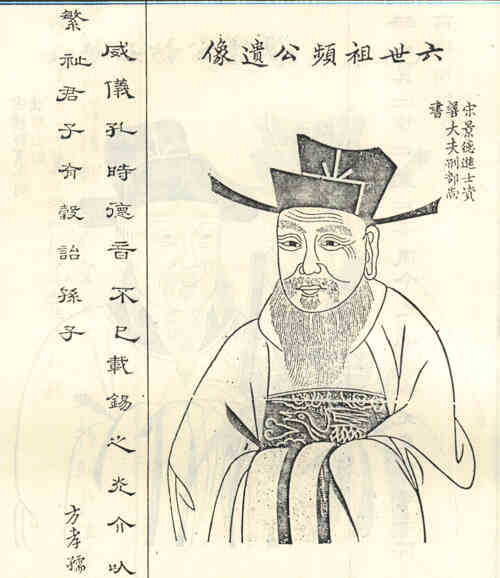 六世祖頻公遺像
宋景德進士資
善大夫刑部尚
書
威儀孔時德音不已載錫之光介以
繁祉君子有穀詒孫子
方孝孺